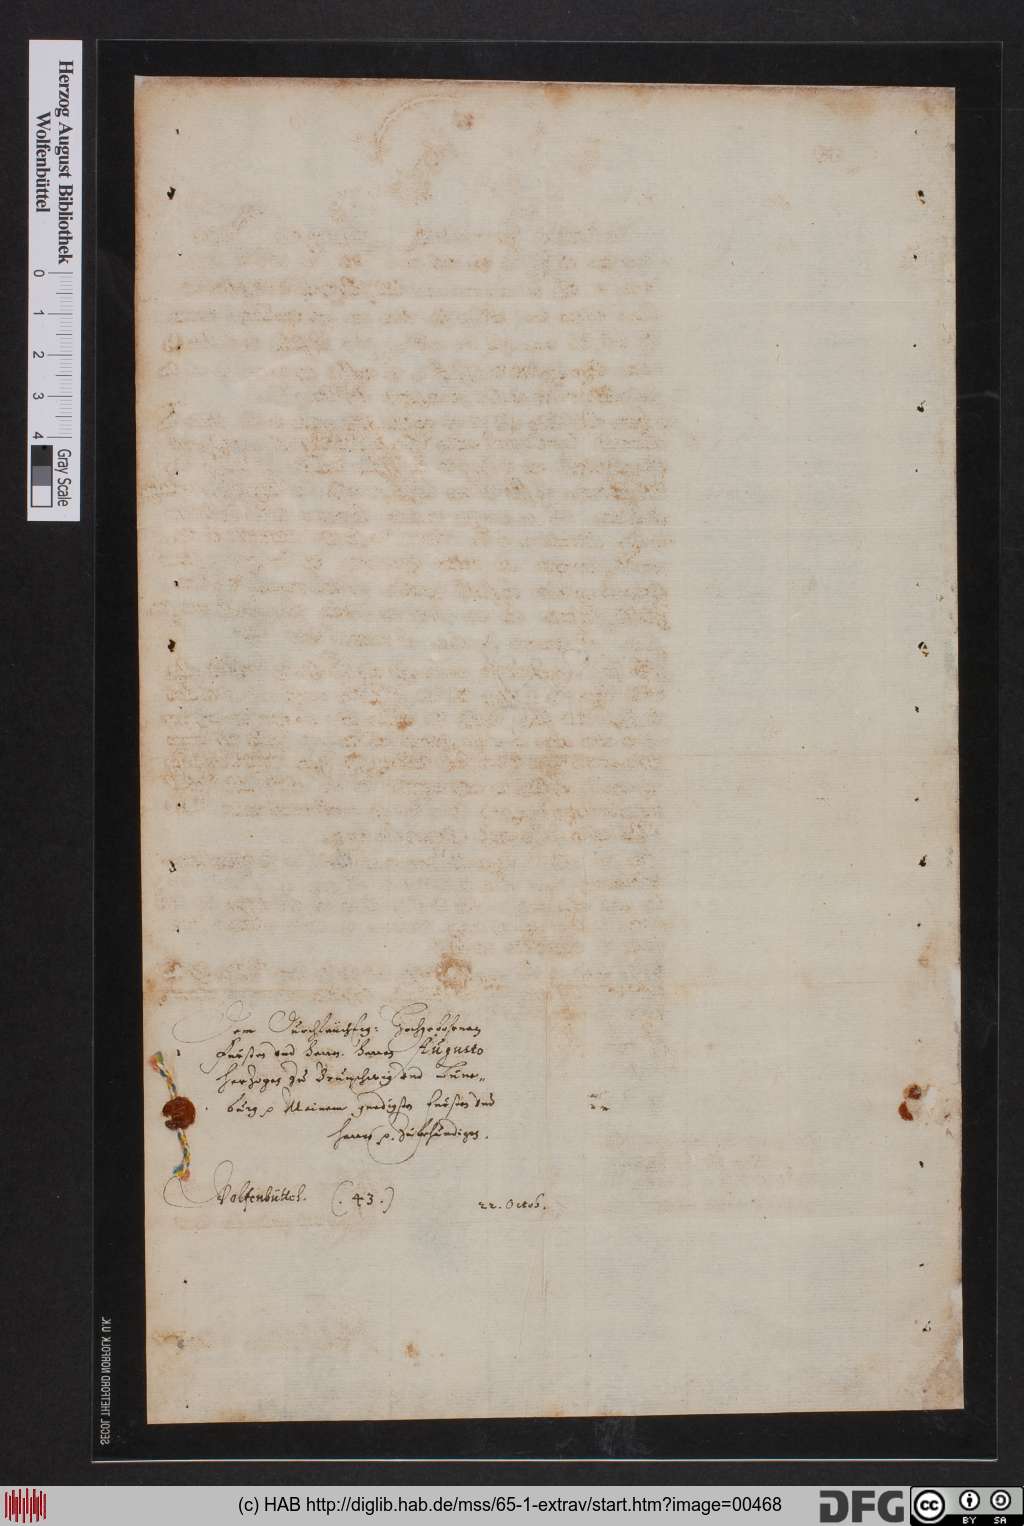 Dem Durchlauchtig: Hochgebohrnen
Fürsten und Herrn. Herrn Augusto
Herzogen zu Brunschwig und Lune„
burg p Meinem gnedigsten Fürsten und
Herrn p. zubehändigen.
Wolfenbüttel. (. 43 .) 22. Octob.
Herzog August Bibliothek
Wolfenbüttel
0 1 2 3 4
Gray Scale
SECOL THETFORD NORFOLK U.K.
(c) HAB http://diglib.hab.de/mss/65-1-extrav/start.htm?image=00468
DFG
cc
BY SA